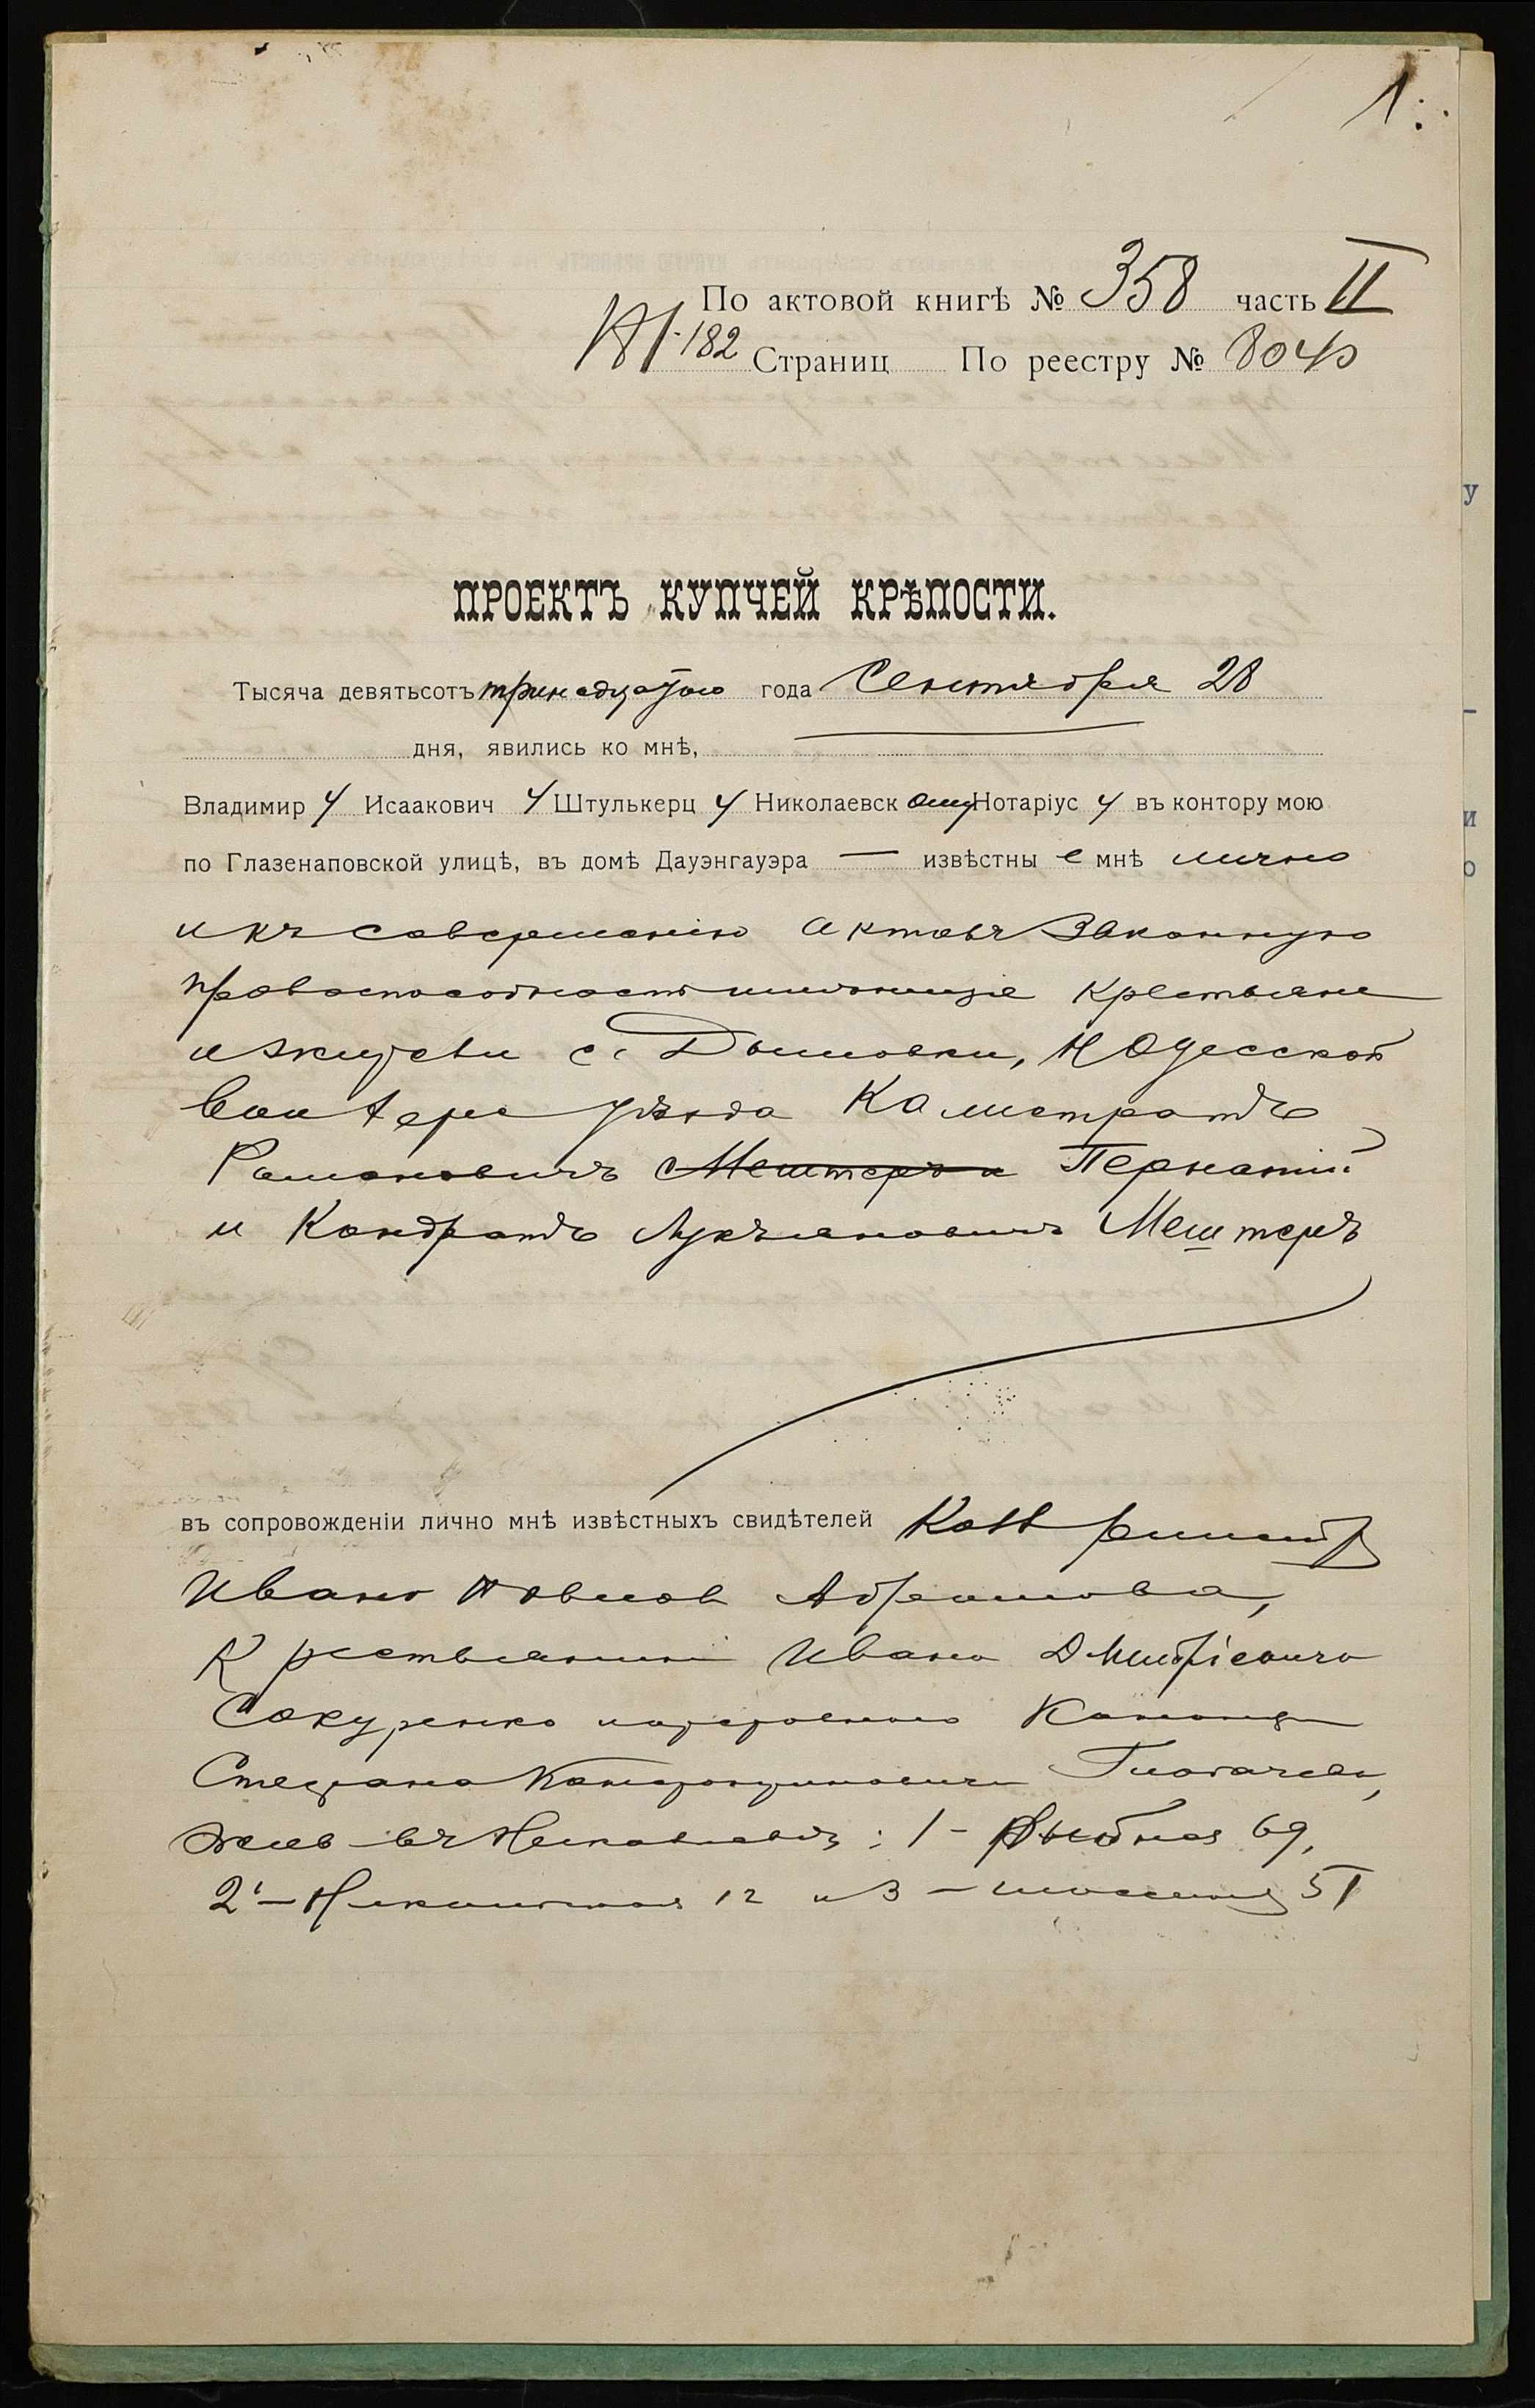 1.
По актовой книгѣ № 358 часть II
182 Страниц По реестру № 8040
ПРОЕКТЪ КУПЧЕЙ КРѢПОСТИ.
Тысяча девятьсотъ тринадцатого года Сентября 28
дня, явились ко мнѣ,
Владимир у Исаакович у Штулькерц у Николаевск ому Нотаріус у въ контору мою
по Глазенаповской улицѣ, въ домѣ Дауэнгауэра — извѣстны е мнѣ лично
и къ совершенію актовъ законную
правоспособность имѣющіе крестьяне
и жител с. Дымовки, Н Одесской
вол Херс уѣзда Калистратъ
Романовичъ Мештеръ и Пернатій
и Кондратъ Лукьяновичъ Мештеръ
въ сопровожденіи лично мнѣ извѣстныхъ свидѣтелей
Ивана Павлов Абрамова,
Крестьянин Ивана Дмитріевича
Сокуренко и Канонира
Стефана
жив въ Николаевѣ: 1 - Рыбная 69,
2 - Никольская 12 и 3 - 51
у
-
и
о